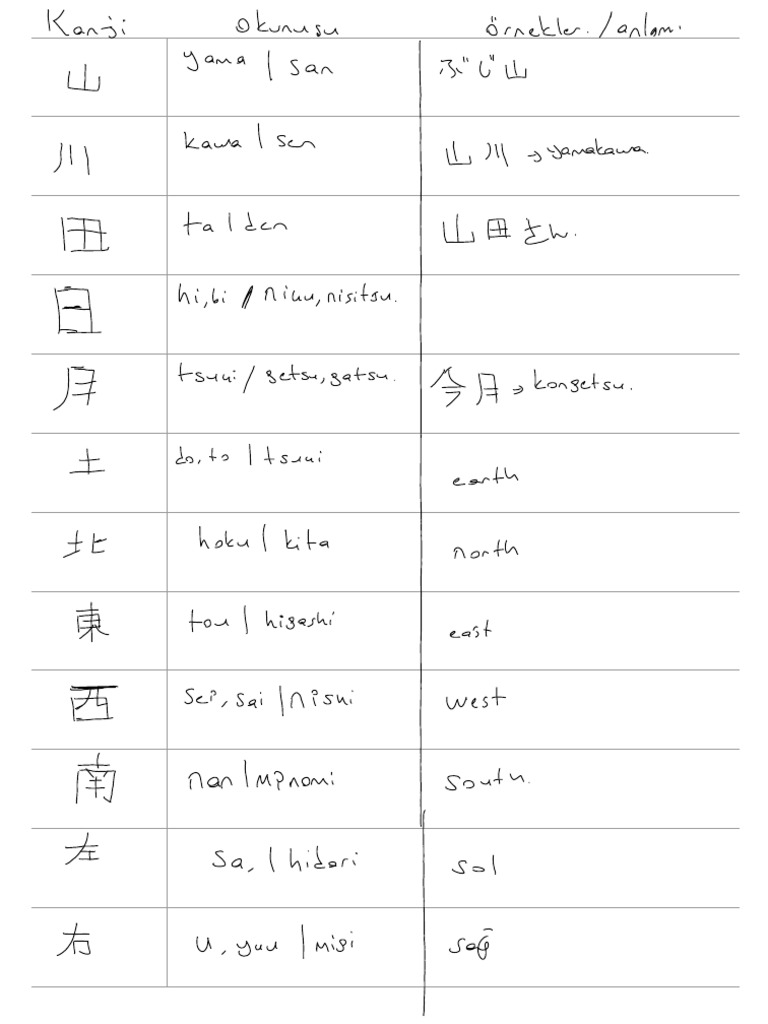 Kanji okunuşu örnekler. /anlam.
山 yama / san ぶじ山
川 kawa / sen 山川 → yamakawa.
田 ta / den 山田さん.
日 hi, bi /
月 / getsu, gatsu. 今月 → kongetsu.
土 do, to / earth
北 hoku / kita north
東 tou / higashi east
西 sei, sai / west
南 nan / minami south.
左 sa, / hidari sol
右 u, yuu / migi sağ